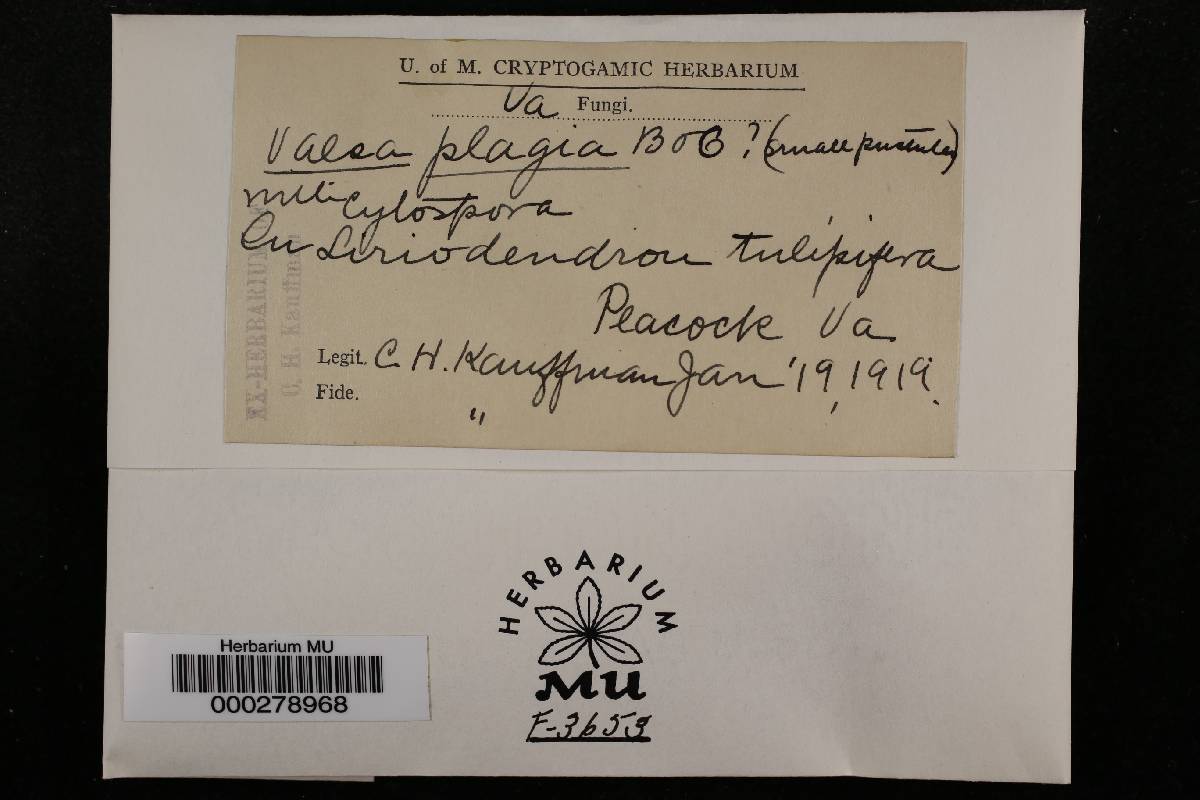 U. of M. CRYPTOGAMIC HERBARIUM
Va Fungi.
Valsa plagia B & C ? (small pustules)
with Cytospora
On Liriodendron tulipifera
Peacock Va
Legit. C. H. Kauffman Jan '19, 1919.
Fide. "
EX-HERBARIUM
C. H. Kauffman
HERBARIUM
MU
F-3659
Herbarium MU
000278968